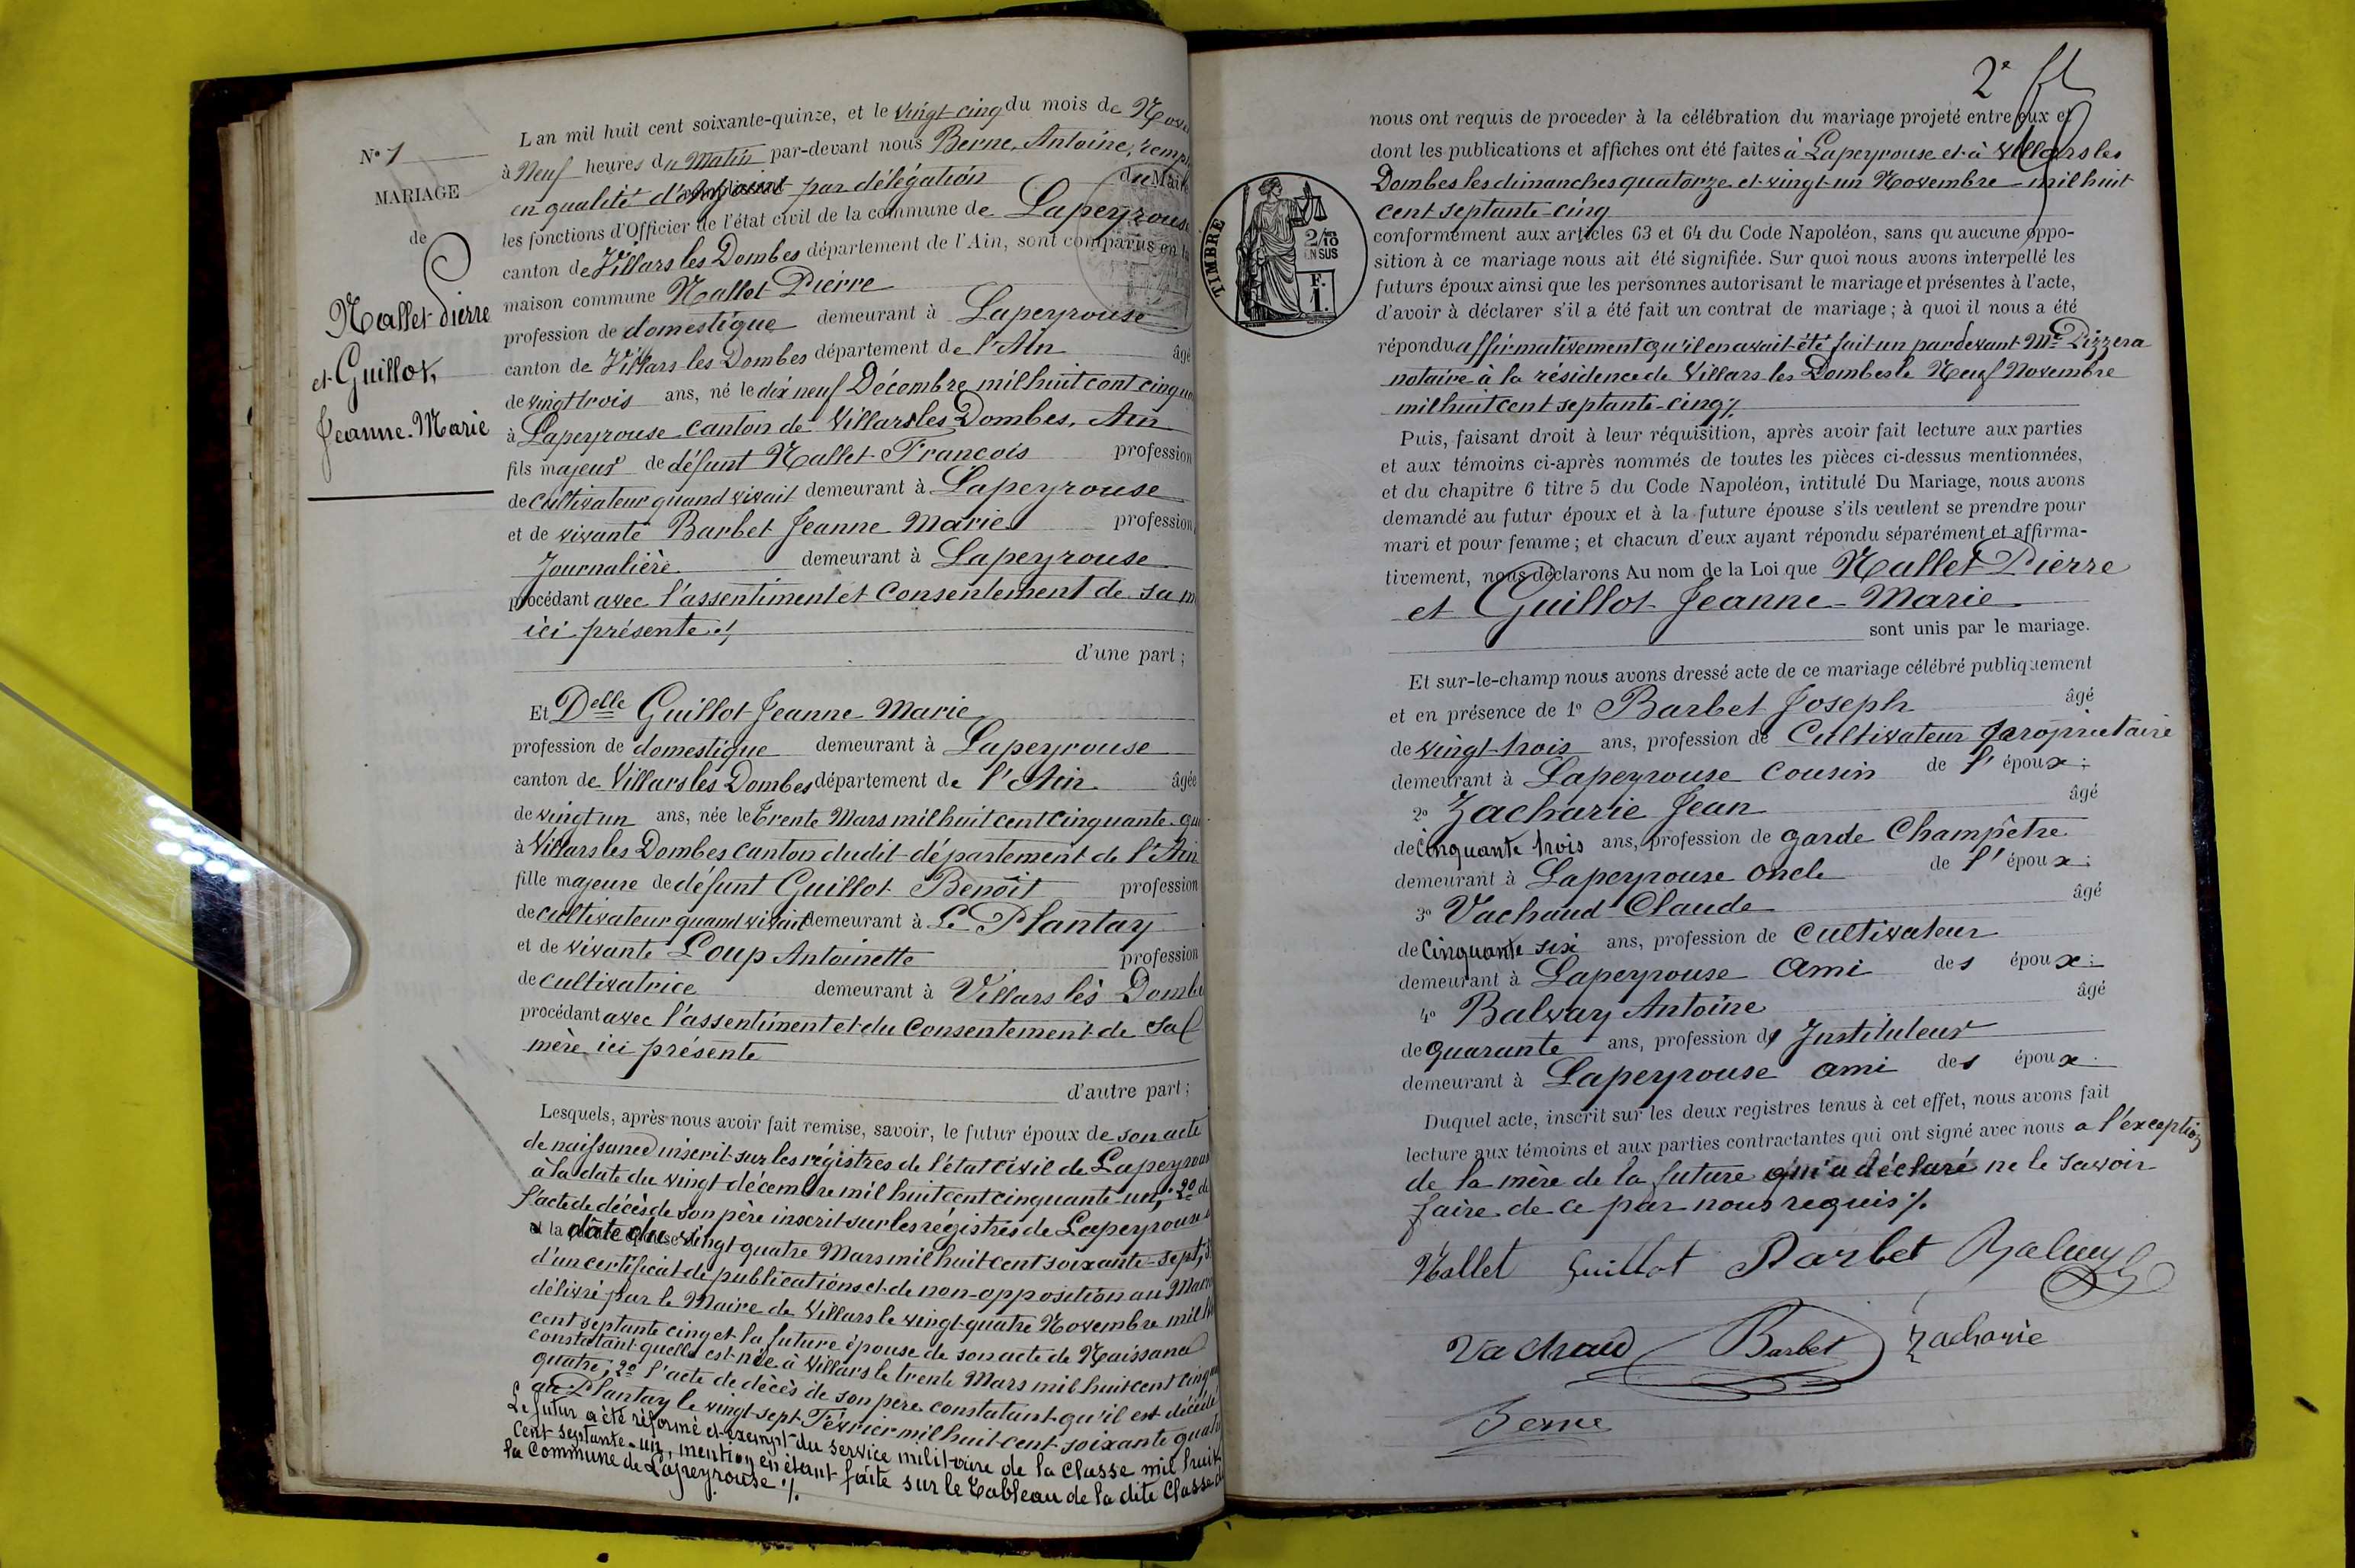 N° 1
MARIAGE
de
Nallet Pierre
et Guillot,
Jeanne-Marie
L an mil huit cent soixante-quinze, et le vingt-cinq du mois de Nove
à Neuf heures du Matin par-devant nous Berne, Antoine, rempl
en qualité d' par délégation du Maire
les fonctions d'Officier de l'état civil de la commune de Lapeyrouse
canton de Villars les Dombes département de l'Ain, sont comparus en la
maison commune Nallet Pierre
profession de domestique demeurant à Lapeyrouse
canton de Villars les Dombes département de l'Ain âgé
de vingt trois ans, né le dix neuf Décembre mil huit cent cinqua
à Lapeyrouse canton de Villars les Dombes, Ain
fils majeur de défunt Nallet François profession
de cultivateur quand vivait demeurant à Lapeyrouse
et de vivante Barbet Jeanne Marie profession
Journalière demeurant à Lapeyrouse
procédant avec l'assentiment et consentement de sa m
ici présente ./.
d'une part ;
Et Delle Guillot Jeanne Marie
profession de domestique demeurant à Lapeyrouse
canton de Villars les Dombes département de l'Ain âgée
de vingt un ans, née le Trente Mars mil huit cent cinquante-qu
à Villars les Dombes canton dudit département de l'Ain
fille majeure de défunt Guillot Benoît profession
de cultivateur quand vivait demeurant à Le Plantay
et de vivante Loup Antoinette profession
de cultivatrice demeurant à Villars les Dombe
procédant avec l'assentiment et du consentement de sa
mère ici présente
d'autre part ;
Lesquels, après nous avoir fait remise, savoir, le futur époux de son acte
de naissance inscrit sur les régistres de l'état civil de Lapeyrouse
à la date du vingt décembre mil huit cent cinquante-un, 2° de
l'acte de décès de son père inscrit sur les régistres de Lapeyrouse
à la date du vingt quatre Mars mil huit cent soixante-sept, 3
d'un certificat de publications et de non-opposition au Mari
délivré par le Maire de Villars le vingt-quatre Novembre mil hu
cent septante cinq et la future épouse de son acte de Naissance
constatant quelle est née à Villars le trente Mars mil huit cent cinqua
quatre; 2° l'acte de décès de son père constatant qu'il est décédé
au Plantay le vingt-sept Février mil huit-cent soixante quatr
Le futur a été réformé et exempt du service militaire de la classe mil huit
cent septante-un, mention en étant faite sur le Tableau de la dite Classe d
la Commune de Lapeyrouse ./.
2e
TIMBRE
2/10
EN SUS
F.
1.
nous ont requis de proceder à la célébration du mariage projeté entre eux et
dont les publications et affiches ont été faites à Lapeyrouse et à Villars les
Dombes les dimanches quatorze et vingt-un Novembre mil huit
cent septante-cinq
conformément aux articles 63 et 64 du Code Napoléon, sans qu aucune oppo-
sition à ce mariage nous ait été signifiée. Sur quoi nous avons interpellé les
futurs époux ainsi que les personnes autorisant le mariage et présentes à l'acte,
d'avoir à déclarer s'il a été fait un contrat de mariage ; à quoi il nous a été
répondu affirmativement qu'il en avait été fait un pardevant Me Pizzera
notaire à la résidence de Villars les Dombes le Neuf Novembre
mil huit cent septante-cinq ./.
Puis, faisant droit à leur réquisition, après avoir fait lecture aux parties
et aux témoins ci-après nommés de toutes les pièces ci-dessus mentionnées,
et du chapitre 6 titre 5 du Code Napoléon, intitulé Du Mariage, nous avons
demandé au futur époux et à la future épouse s'ils veulent se prendre pour
mari et pour femme ; et chacun d'eux ayant répondu séparément et affirma-
tivement, nous déclarons Au nom de la Loi que Nallet Pierre
et Guillot Jeanne-Marie
sont unis par le mariage.
Et sur-le-champ nous avons dressé acte de ce mariage célébré publiquement
et en présence de 1° Barbet Joseph âgé
de vingt-trois ans, profession de Cultivateur propriétaire
demeurant à Lapeyrouse cousin de l'époux ;
2° Zacharie Jean âgé
de cinquante trois ans, profession de garde Champêtre
demeurant à Lapeyrouse oncle de l'époux ;
3° Vachaud Claude âgé
de cinquante six ans, profession de cultivateur
demeurant à Lapeyrouse ami des époux ;
4° Balvay Antoine âgé
de quarante ans, profession d' Instituteur
demeurant à Lapeyrouse ami des époux.
Duquel acte, inscrit sur les deux registres tenus à cet effet, nous avons fait
lecture aux témoins et aux parties contractantes qui ont signé avec nous à l'exception
de la mère de la future qui a déclaré ne le savoir
faire de ce par nous requis ./.
Nallet Guillot Barbet Balvay
Vachaud Barbet Zacharie
Berne